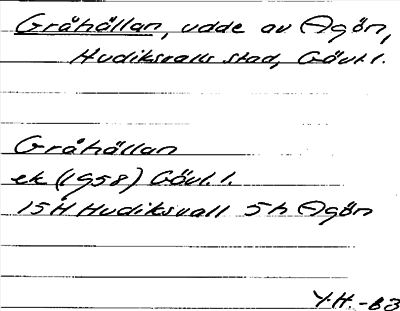 Gråhällan, udde av Agön,
Hudiksvalls stad, Gävl.l.
Gråhällan
ek (1958) Gävl.l.
15H Hudiksvall 5h Agön
Y.H. -83